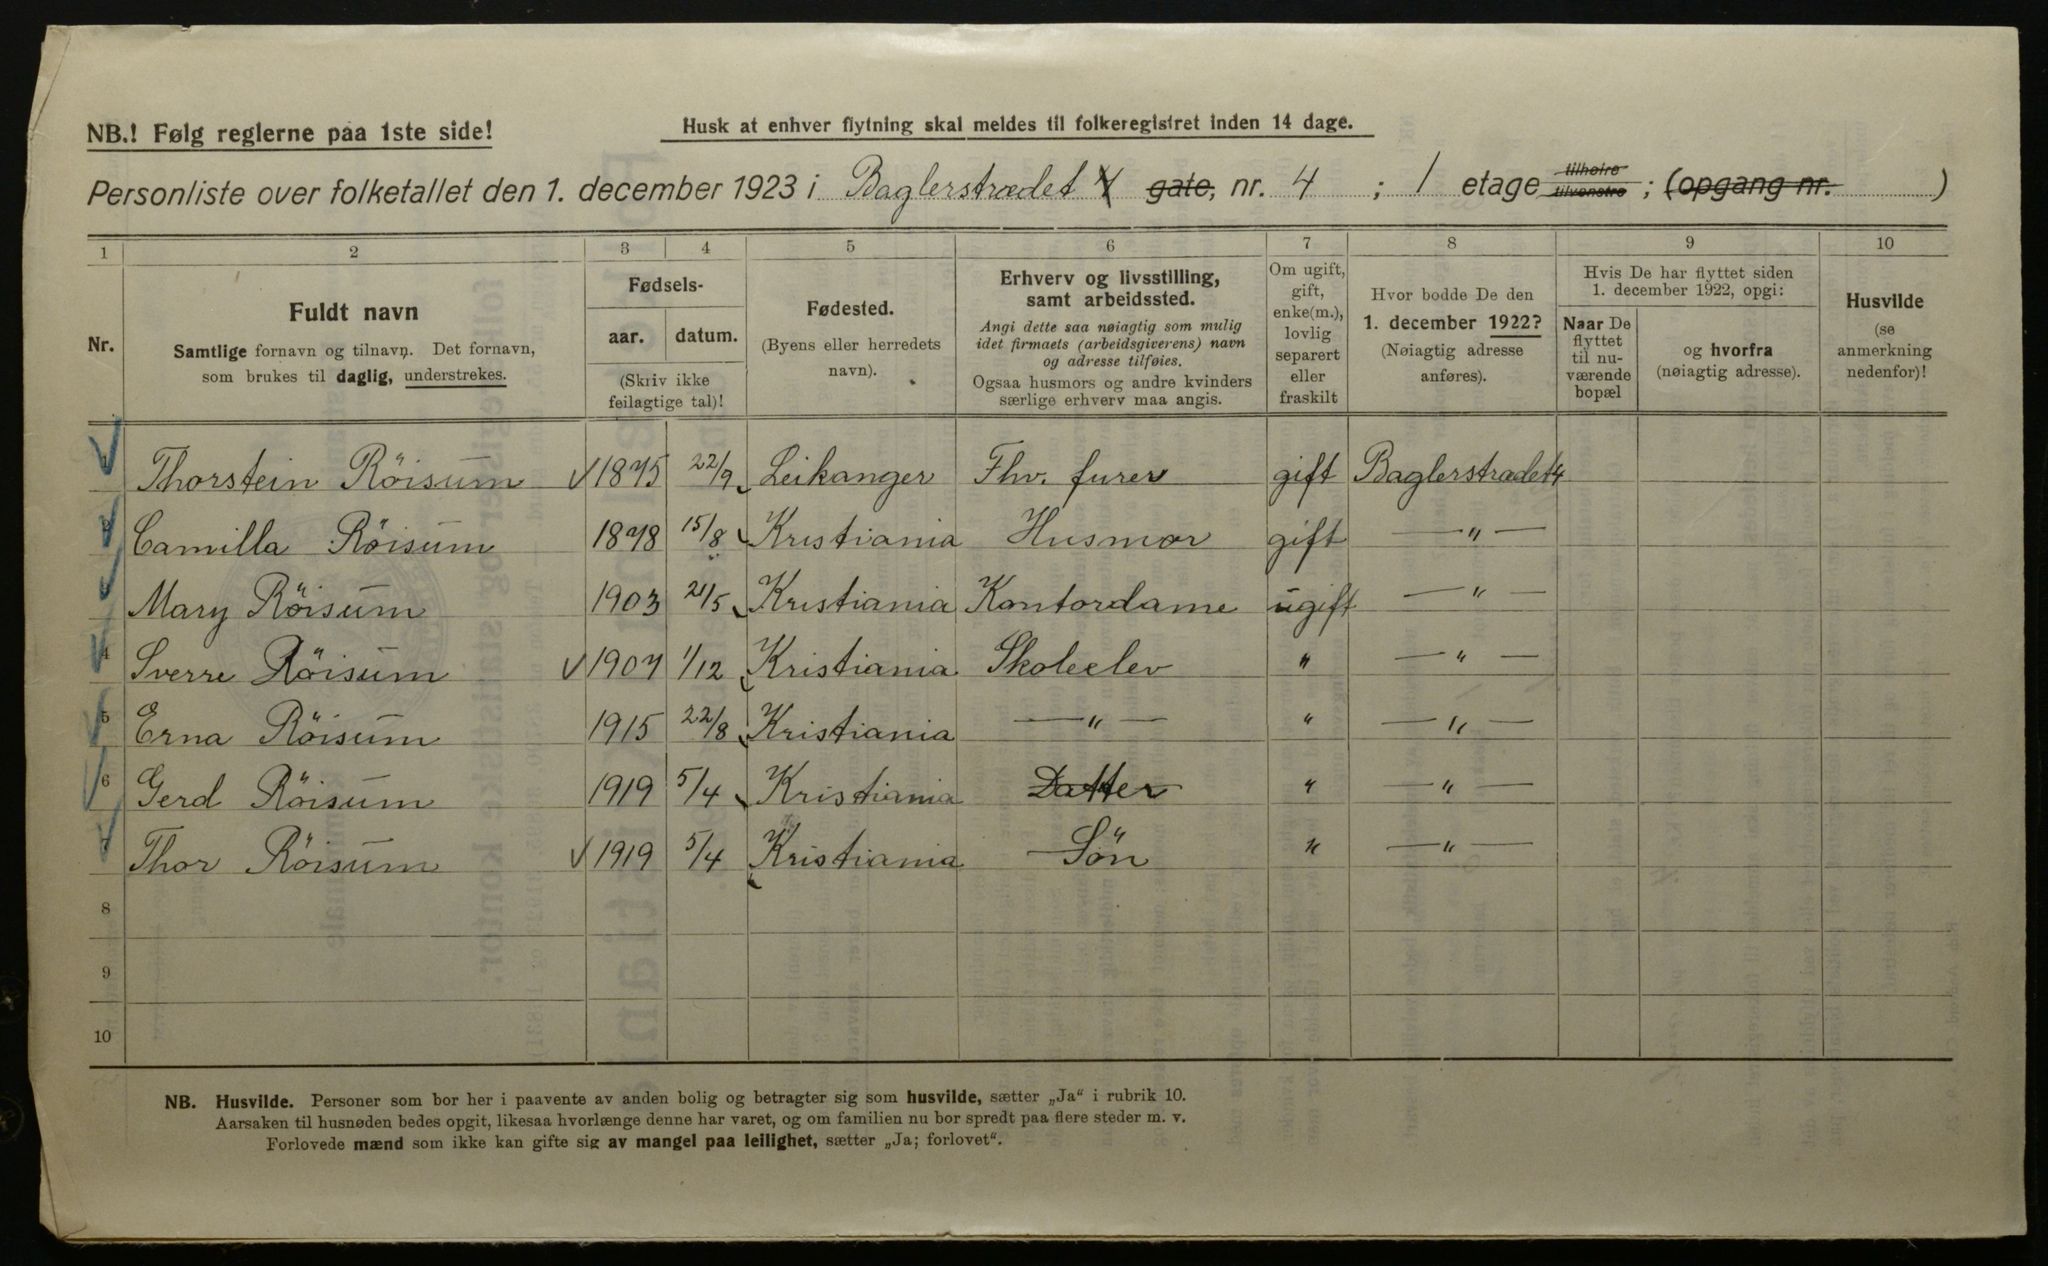 NB.! Følg reglerne paa 1ste side!
Husk at enhver flytning skal meldes til folkeregistret inden 14 dage.
Personliste over folketallet den 1. december 1923 i Baglerstrædet gate, nr. 4 ; 1 etage tilhøire tilvenstre ; (opgang nr. )
1 2 3 4 5 6 7 8 9 10
Nr.
Fuldt navn
Samtlige fornavn og tilnavn. Det fornavn,
som brukes til daglig, understrekes.
Fødsels-
aar. datum.
(Skriv ikke
feilagtige tal)!
Fødested.
(Byens eller herredets
navn).
Erhverv og livsstilling,
samt arbeidssted.
Angi dette saa nøiagtig som mulig
idet firmaets (arbeidsgiverens) navn
og adresse tilføies.
Ogsaa husmors og andre kvinders
særlige erhverv maa angis.
Om ugift,
gift,
enke(m.),
lovlig
separert
eller
fraskilt
Hvor bodde De den
1. december 1922?
(Nøiagtig adresse
anføres).
Hvis De har flyttet siden
1. december 1922, opgi:
Naar De
flyttet
til nu-
værende
bopæl
og hvorfra
(nøiagtig adresse).
Husvilde
(se
anmerkning
nedenfor)!
Thorstein Röisum 1875 22/9 Leikanger Fhv. furer gift Baglerstrædet 4
Camilla Röisum 1878 15/8 Kristiania Husmor gift — " —
Mary Röisum 1903 21/5 Kristiania Kontordame ugift — " —
4 Sverre Röisum 1907 1/12 Kristiania Skoleelev " — " —
5 Erna Röisum 1915 22/8 Kristiania — " — " — " —
6 Gerd Röisum 1919 5/4 Kristiania Datter " — " —
7 Thor Röisum 1919 5/4 Kristiania Sön " — " —
8
9
10
NB. Husvilde. Personer som bor her i paavente av anden bolig og betragter sig som husvilde, sætter „Ja“ i rubrik 10.
Aarsaken til husnøden bedes opgit, likesaa hvorlænge denne har varet, og om familien nu bor spredt paa flere steder m. v.
Forlovede mænd som ikke kan gifte sig av mangel paa leilighet, sætter „Ja; forlovet“.